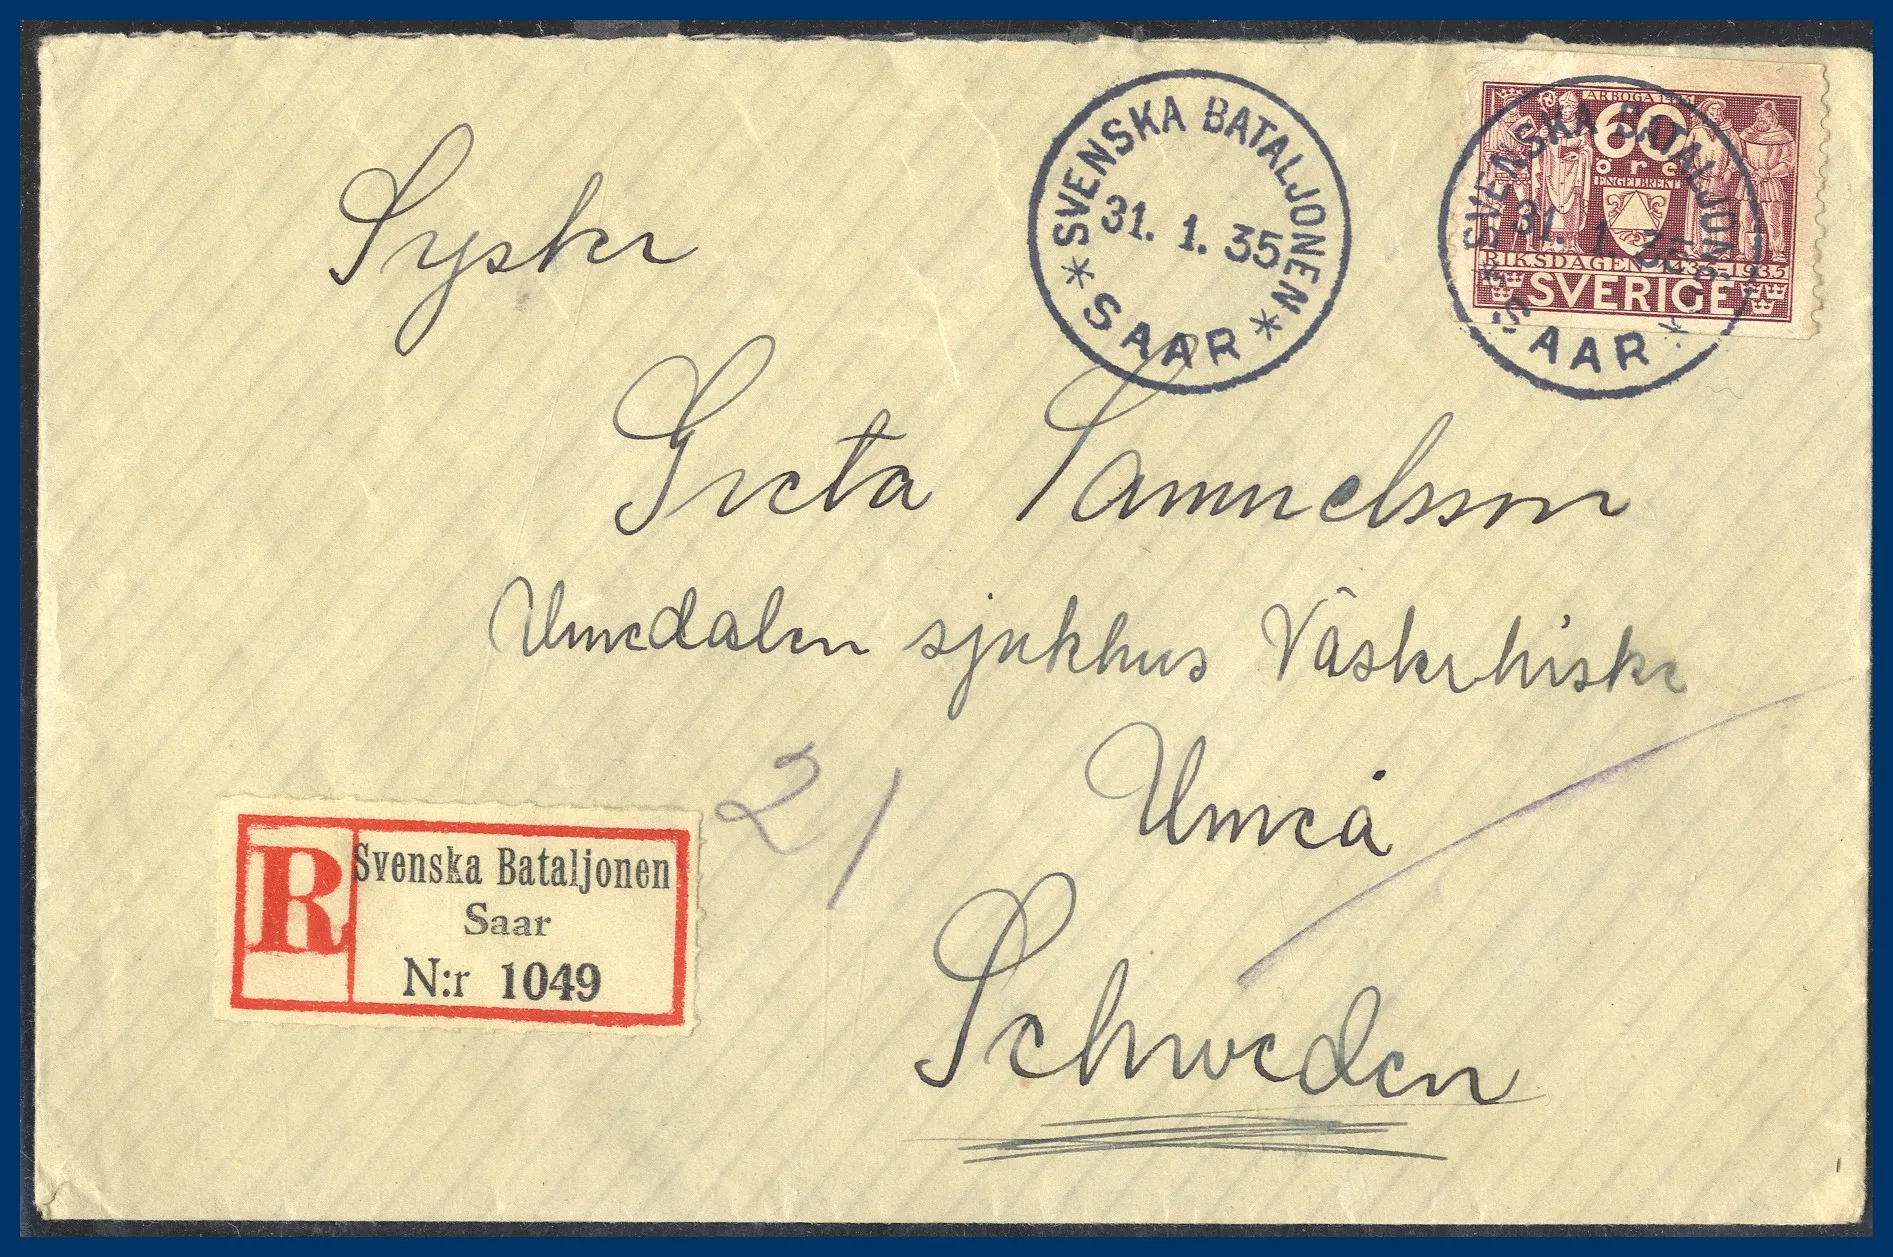 SVENSKA BATALJONEN
31. 1. 35
* SAAR *
SVENSKA BATALJONEN
31. 1. 35
SAAR
ARBOGA
60
öre
ENGELBREKT
RIKSDAGEN 1435-1935
SVERIGE
Syster
Greta Samuelsson
Umedalen sjukhus Västerhiske
Umeå
21
R
Svenska Bataljonen
Saar
N:r 1049
Schweden